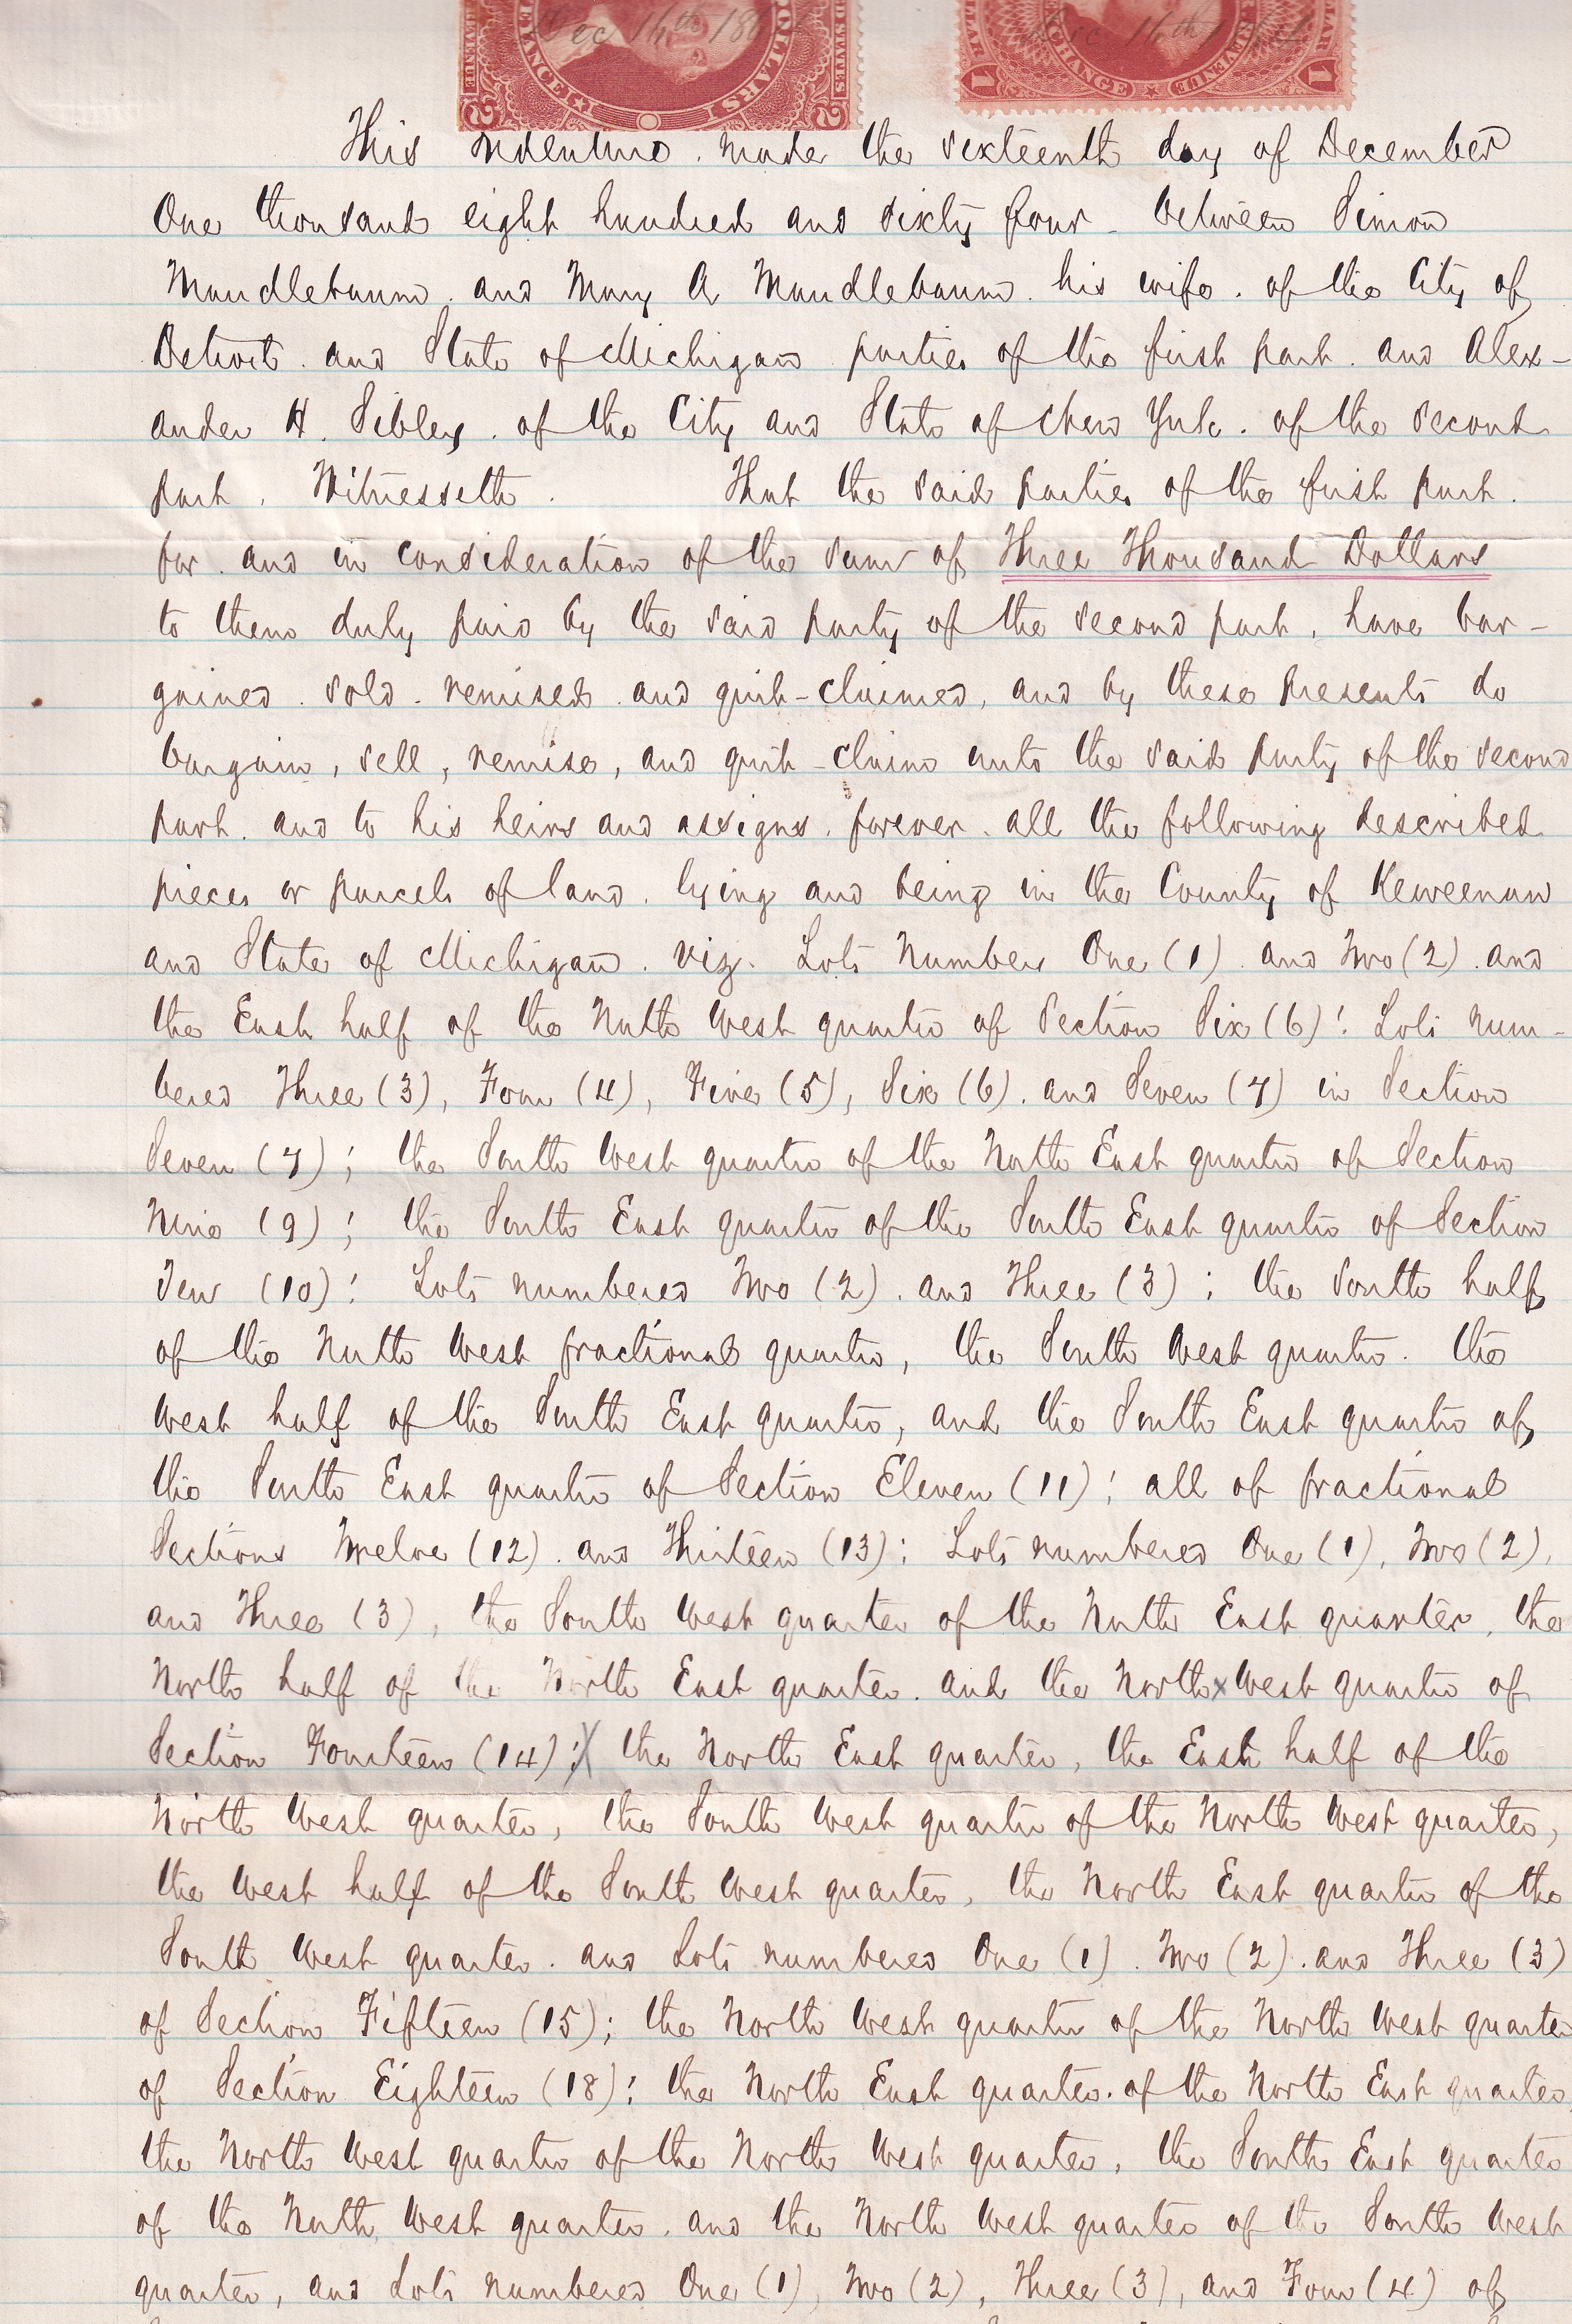 Dec 16th 1864
Dec 16th 1864
2 CONVEYANCE DOLLARS 2
1 EXCHANGE REVENUE 1
This Indenture. made the sixteenth day of December
One thousand eight hundred and sixty four - between Simon
Mandlebaum. and Mary A Mandlebaum. his wife. of the City of
Detroit. and State of Michigan parties of the first part. and Alex-
ander H. Sibley. of the City and State of New York. of the second
part. Witnesseth. That the said parties of the first part.
for. and in consideration of the sum of Three Thousand Dollars
to them duly paid by the said party of the second part, have bar-
gained. sold. remised. and quit-claimed, and by these presents do
bargain, sell, remise, and quit-claim unto the said party of the second
part. and to his heirs and assigns. forever. all the following described
pieces or parcels of land. lying and being in the County of Keweenaw
and State of Michigan. viz. Lots Numbers One (1) and Two (2) and
the East half of the North West quarter of Section Six (6); Lots num-
bered Three (3), Four (4), Five (5), Six (6). and Seven (7) in Section
Seven (7); the South West quarter of the North East quarter of Section
Nine (9); the South East quarter of the South East quarter of Section
Ten (10); Lots numbered Two (2). and Three (3); the South half
of the North West fractional quarter, the South West quarter. the
West half of the South East quarter, and the South East quarter of
the South East quarter of Section Eleven (11); all of fractional
Sections Twelve (12) and Thirteen (13); Lots numbered One (1), Two (2),
and Three (3), the South West quarter of the North East quarter, the
North half of the North East quarter. and the North x West quarter of
Section Fourteen (14); X the North East quarter, the East half of the
North West quarter, the South West quarter of the North West quarter,
the West half of the South West quarter, the North East quarter of the
South West quarter. and Lots numbered One (1). Two (2). and Three (3)
of Section Fifteen (15); the North West quarter of the North West quarter
of Section Eighteen (18); the North East quarter. of the North East quarter,
the North West quarter of the North West quarter, the South East quarter
of the North West quarter. and the North West quarter of the South West
quarter, and Lots numbered One (1), Two (2), Three (3), and Four (4) of